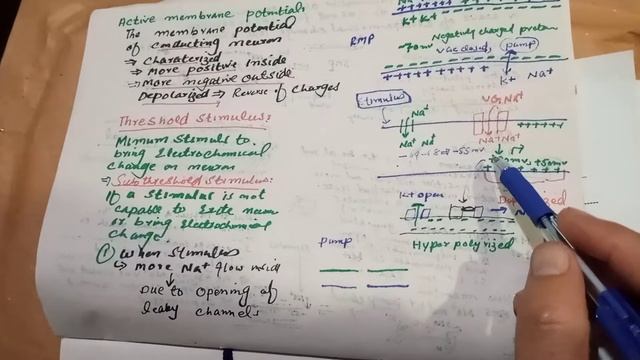 Active membrane potentials
The membrane potential
of conducting neuron
⇒ Charaterized
⇒ More positive inside
⇒ More negative outside
Depolarized ⇒ Reverse of Charges
Threshold Stimulus:
Minimum Stimuls to
bring Electrochemical
Change on neuron
⇒ Subthreshold Stimulus:
If a Stimulus is not
capable to Exite neuron
or bring Electrochemical
Change.
① When Stimulus
↳ More Na+ flow inside
Due to Opening of
leaky channels
K+ K+
RMP
-70mv
Negatively charged protein
VGC closed
pump
K+ Na+
Stimulus
Na+
VGC Na+
Na+ Na+
Na+ Na+
-55mv
+50mv
K+ open
Hyper polyrized
pump